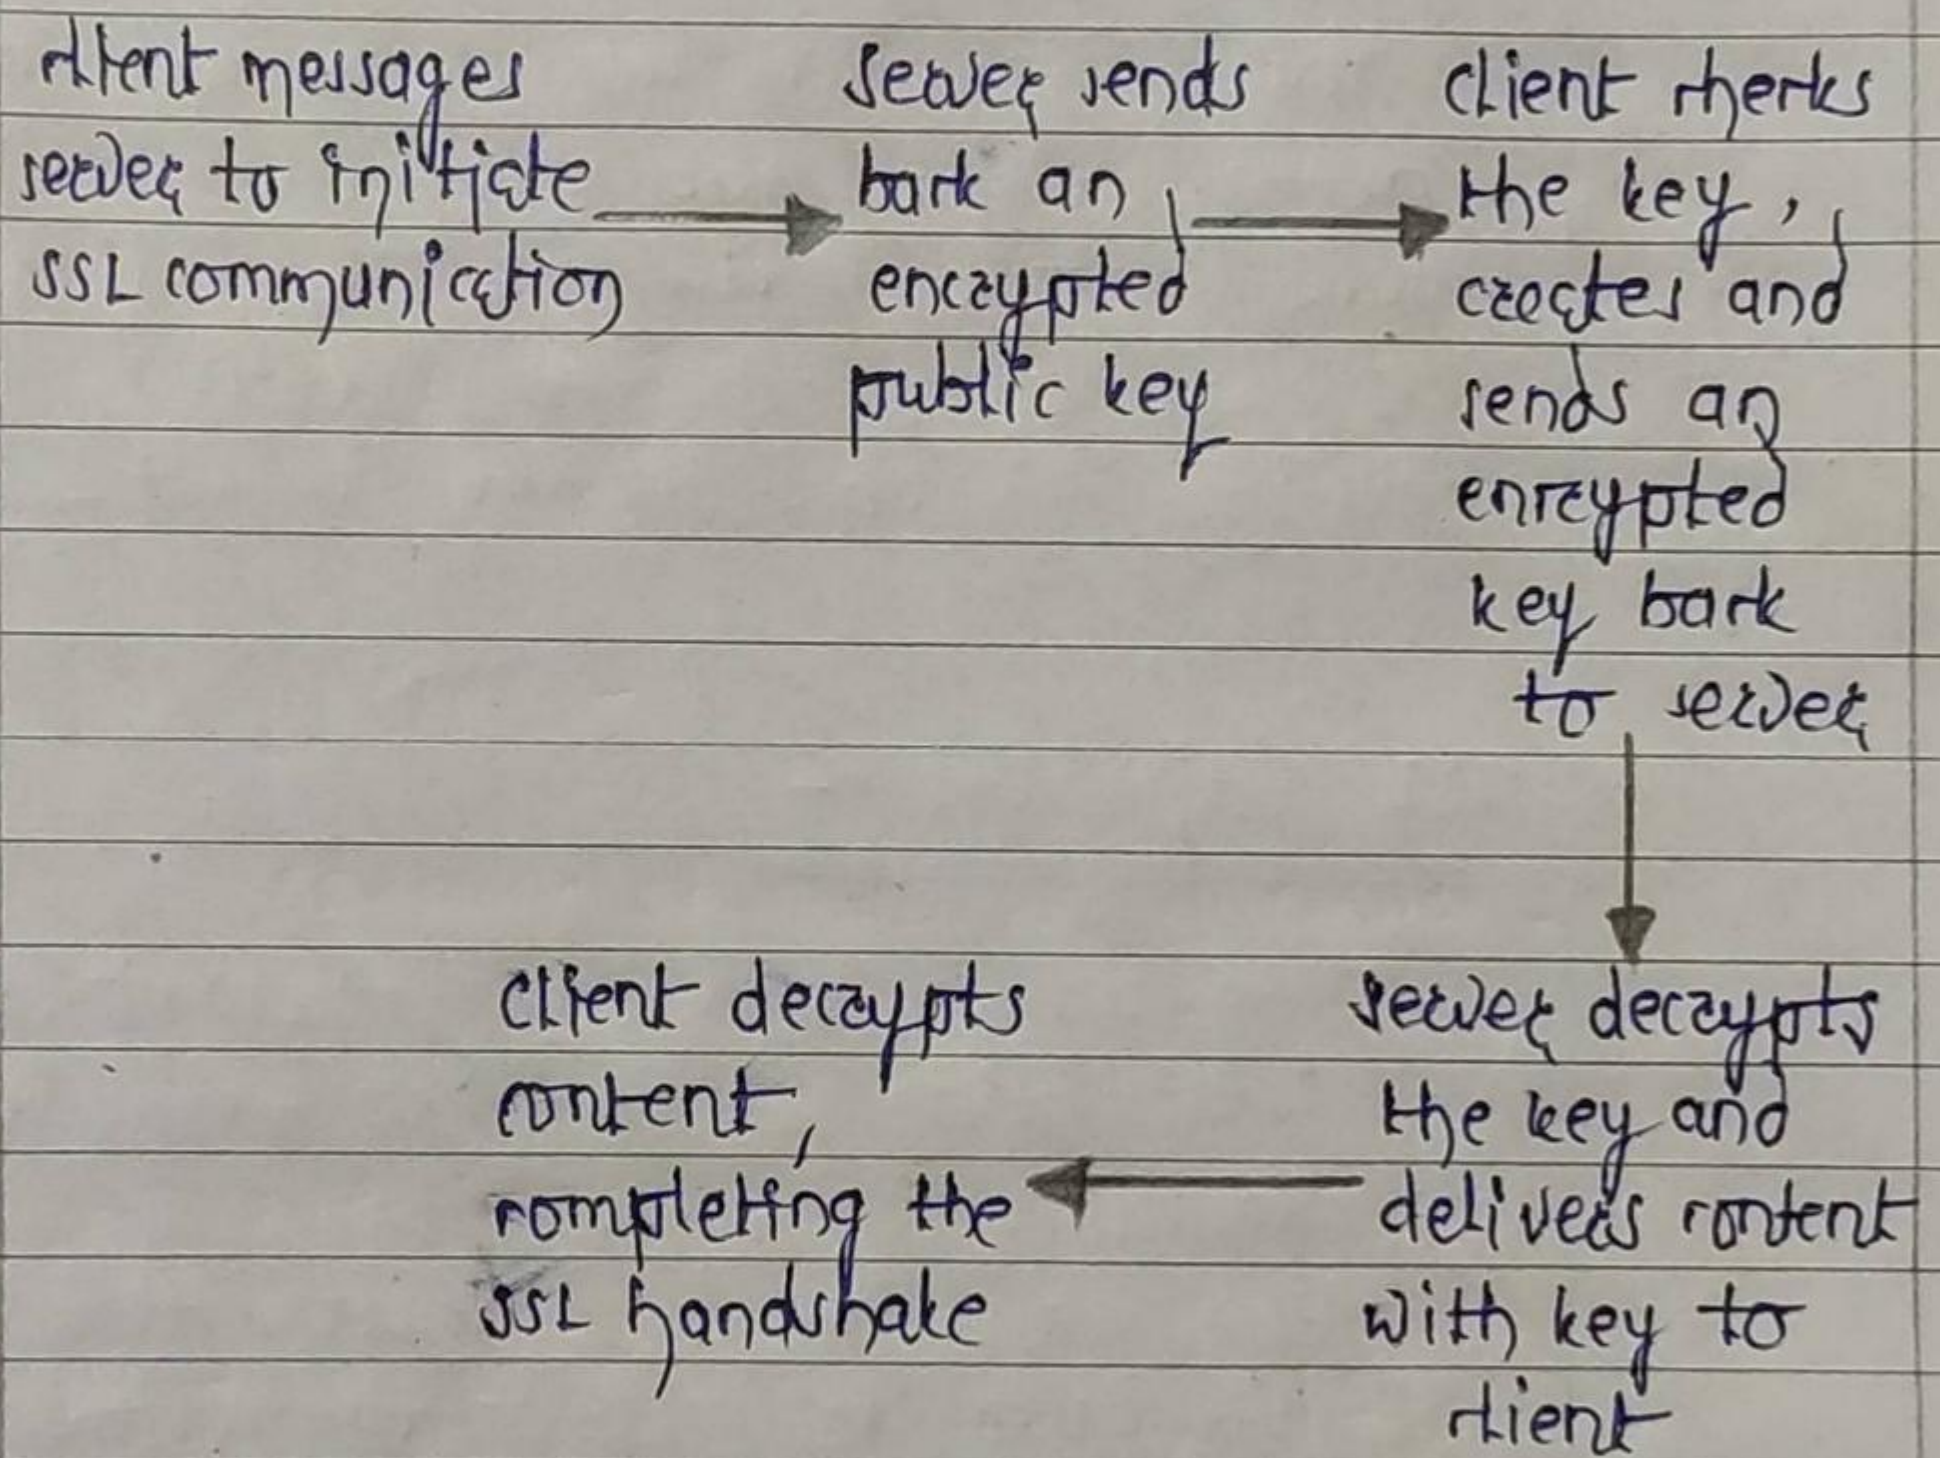 client messages
server to initiate
SSL communication
server sends
back an
encrypted
public key
client checks
the key,
creates and
sends an
encrypted
key back
to server
server decrypts
the key and
delivers content
with key to
client
client decrypts
content,
completing the
SSL handshake